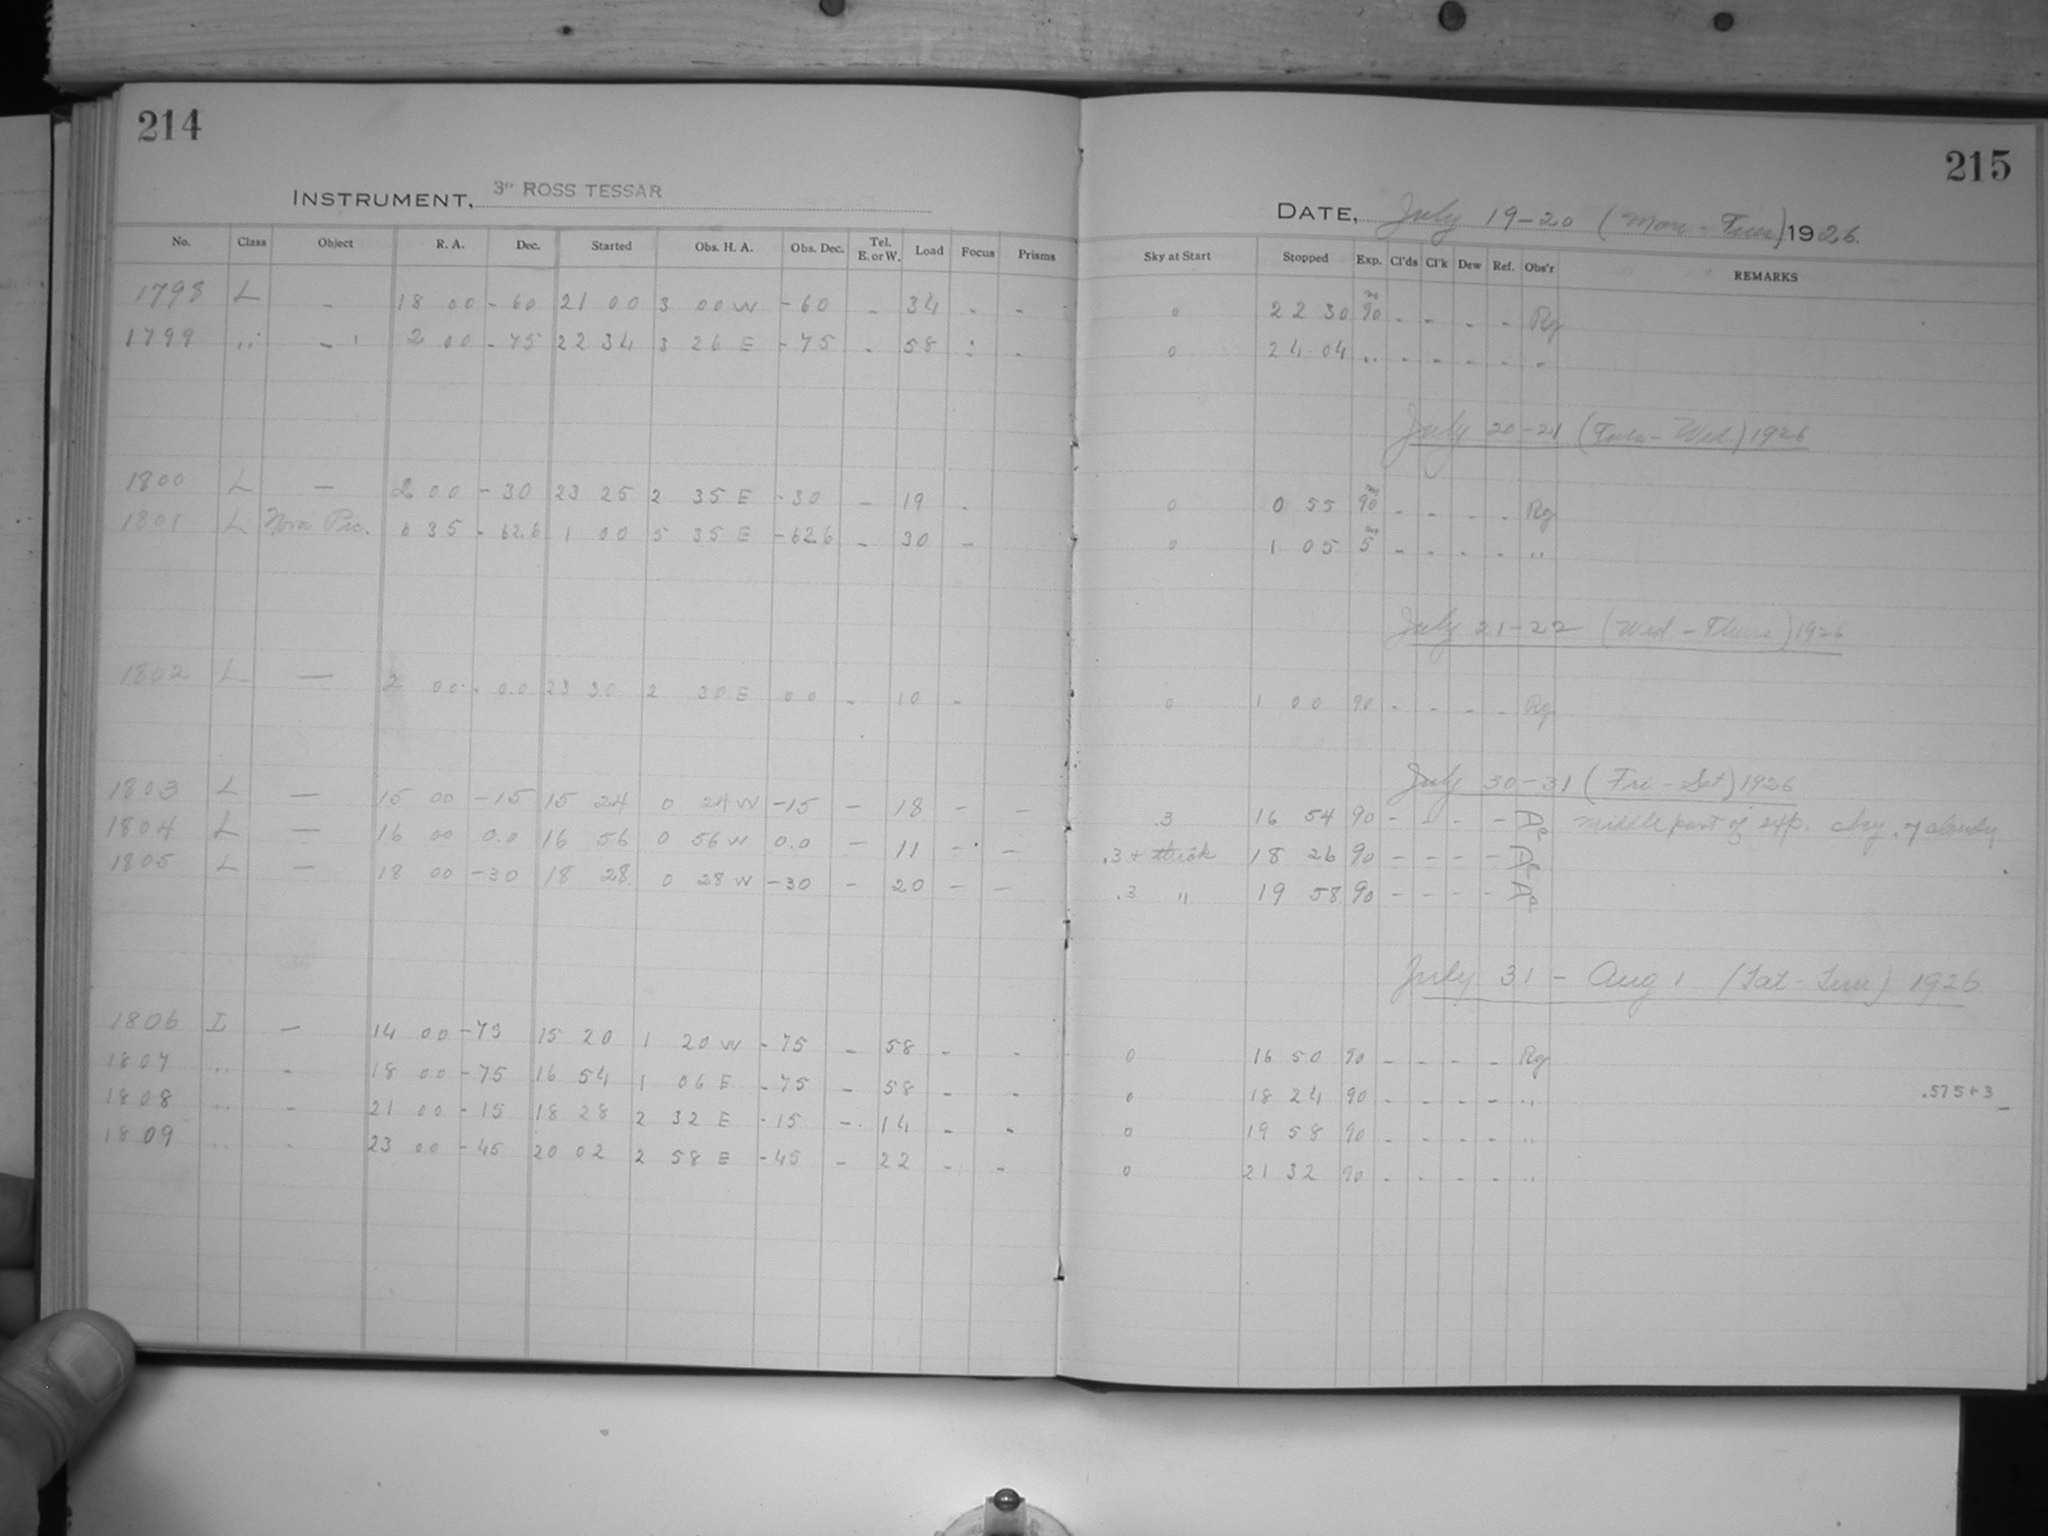 214
215
INSTRUMENT, 3" ROSS TESSAR
DATE, July 19-20 (Mon - Tues) 1926.
No. Class Object R. A. Dec. Started Obs. H. A. Obs. Dec. Tel. E. or W. Load Focus Prisms Sky at Start Stopped Exp. Cl'ds Cl'k Dew Ref. Obs'r REMARKS
1798 L - 18 00 - 60 21 00 3 00 W - 60 - 34 - - 0 22 30 90 - - - - Rg
1799 " - 2 00 - 75 22 34 3 26 E - 75 - 58 - - 0 24 04 " - - - - -
July 20-21 (Tues - Wed.) 1926
1800 L — 2 00 - 30 23 25 2 35 E - 30 - 19 - 0 0 55 90 - - - - Rg
1801 L Nova Pic. 6 35 - 62.6 1 00 5 35 E - 62.6 - 30 - 0 1 05 5 - - - - "
July 21-22 (Wed - Thurs) 1926
1802 L — 2 00 - 0.0 23 30 2 30 E 0 0 - 10 - 0 1 00 90 - - - - Rg
July 30-31 (Fri - Sat) 1926
1803 L — 15 00 - 15 15 24 0 24 W - 15 - 18 - - .3 16 54 90 - - - - middle part of exp. cloudy
1804 L — 16 00 0.0 16 56 0 56 W 0.0 - 11 - - .3 + thick 18 26 90 - - - -
1805 L — 18 00 - 30 18 28 0 28 W - 30 - 20 - - .3 " 19 58 90 - - - -
July 31 - Aug 1 (Sat - Sun) 1926
1806 I - 14 00 - 75 15 20 1 20 W - 75 - 58 - - 0 16 50 90 - - - - Rg
1807 " - 18 00 - 75 16 54 1 06 E - 75 - 58 - - 0 18 24 90 - - - - " .575+3
1808 " - 21 00 - 15 18 28 2 32 E - 15 - 14 - - 0 19 58 90 - - - - "
1809 " - 23 00 - 45 20 02 2 58 E - 45 - 22 - - 0 21 32 90 - - - - "